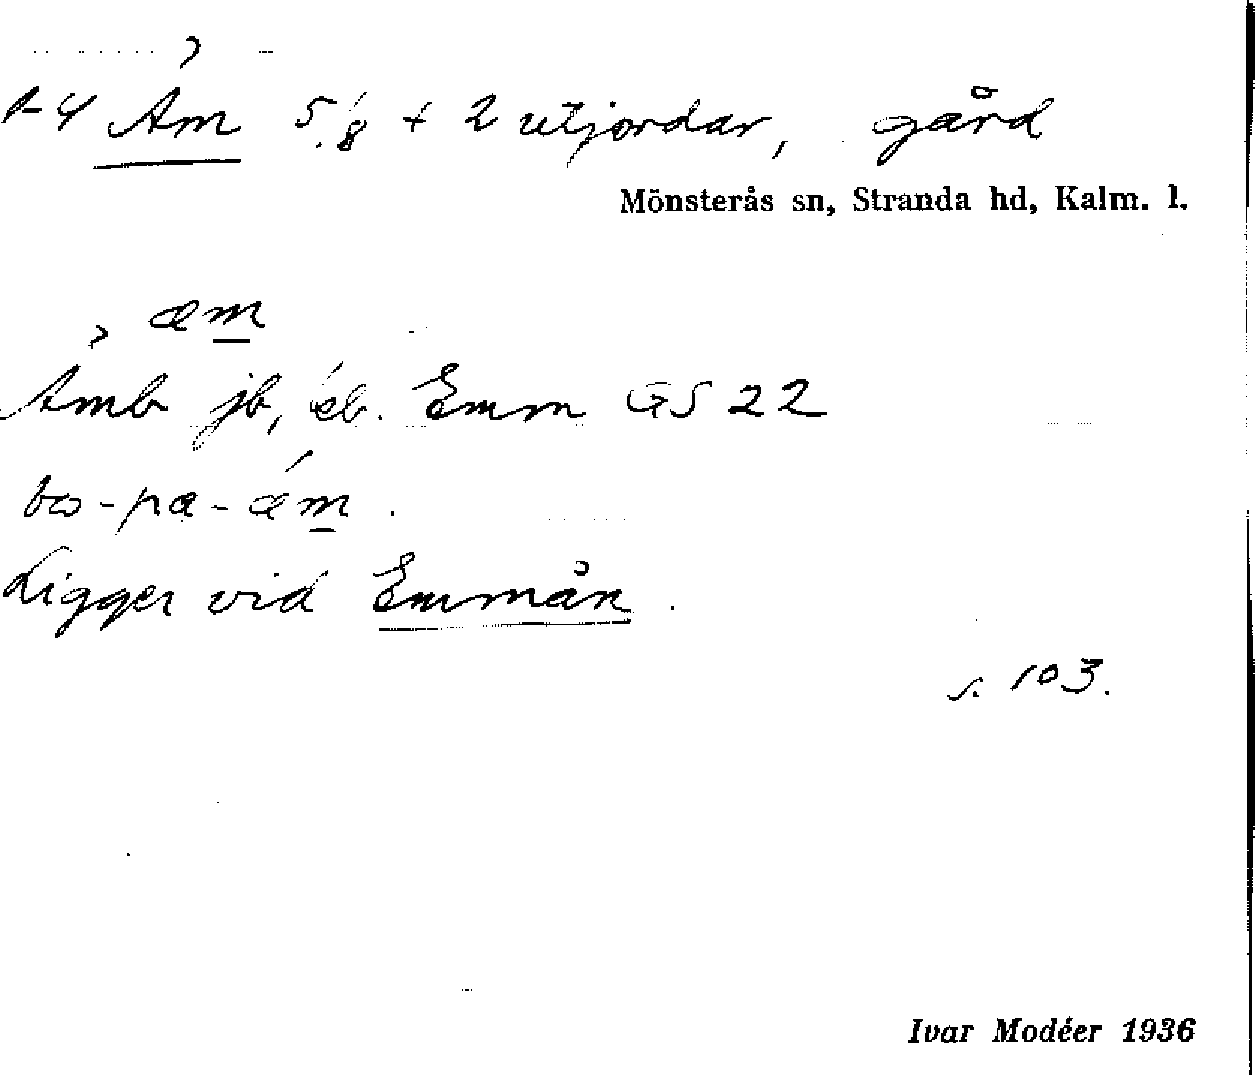 1-4 Äm 5 1/8 + 2 utjordar, gård
Mönsterås sn, Stranda hd, Kalm. l.
æm
Ämb jb, eb. Emm GS 22
bo-pa-ǽm.
Ligger vid Emmån.
s. 103.
Ivar Modéer 1936